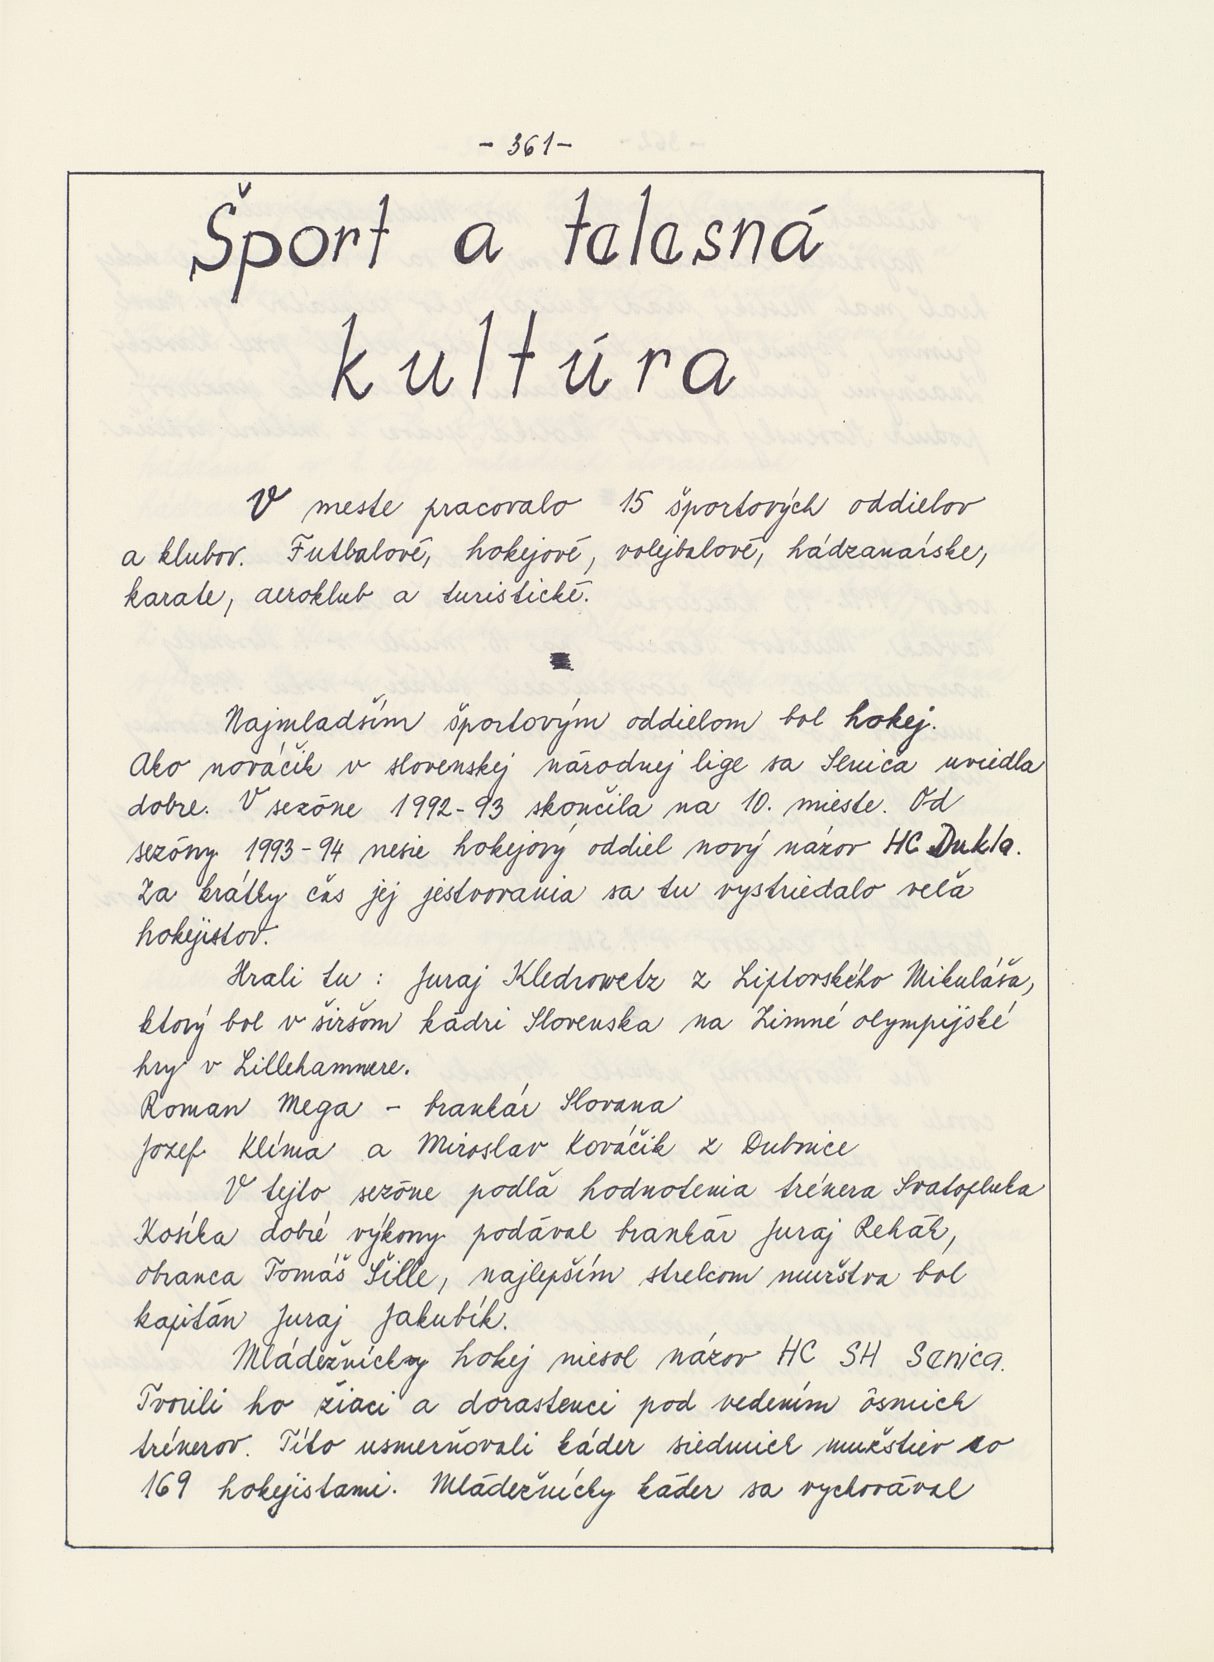 - 361 -
Šport a telesná
kultúra
V meste pracovalo 15 športových oddielov
a klubov. Futbalové, hokejové, volejbalové, hádzanárske,
karate, aeroklub a turistické.
Najmladším športovým oddielom bol hokej.
Ako nováčik v slovenskej národnej lige sa Senica uviedla
dobre. V sezóne 1992-93 skončila na 10. mieste. Od
sezóny 1993-94 nesie hokejový oddiel nový názov HC Dukla.
Za krátky čas jej jestvovania sa tu vystriedalo veľa
hokejistov.
Hrali tu : Juraj Kledrowetz z Liptovského Mikuláša,
ktorý bol v širšom kádri Slovenska na Zimné olympijské
hry v Lillehamnere.
Roman Mega - brankár Slovana
Jozef Klíma a Miroslav Kováčik z Dubnice
V tejto sezóne podľa hodnotenia trénera Svatopluka
Kosíka dobré výkony podával brankár Juraj Rehák,
obranca Tomáš Šille, najlepším strelcom mužstva bol
kapitán Juraj Jakubík.
Mládežnícky hokej niesol názov HC SH Senica.
Tvorili ho žiaci a dorastenci pod vedením ôsmich
trénerov. Títo usmerňovali káder siedmich mužstiev so
169 hokejistami. Mládežnícky káder sa vychovával